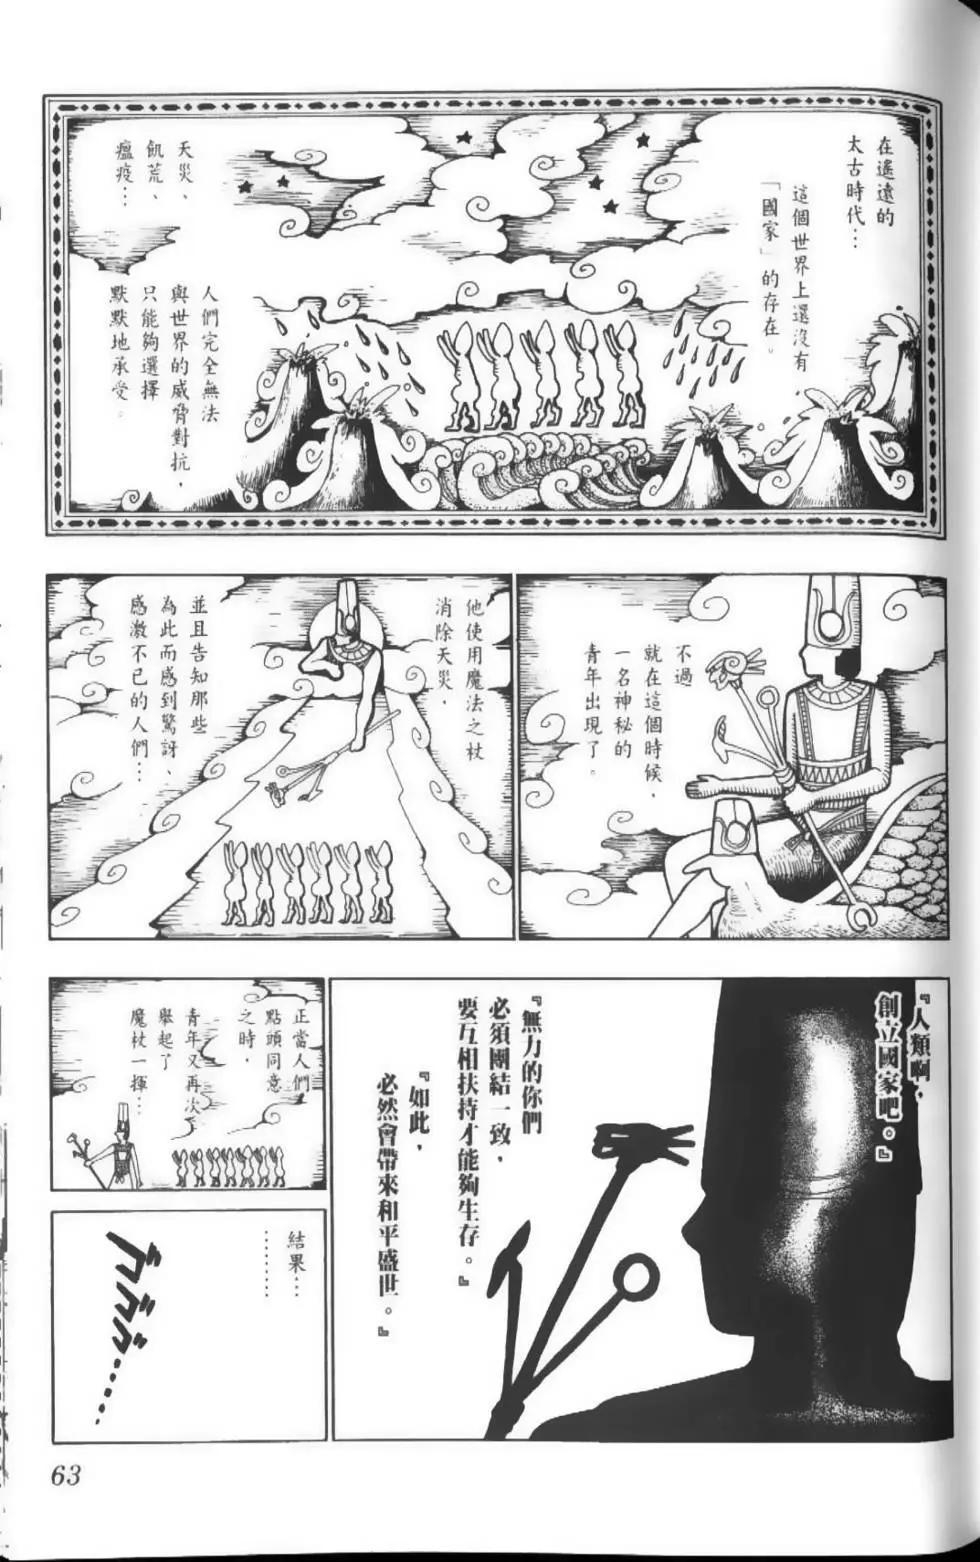 在遙遠的
太古時代…
這個世界上還沒有
「國家」的存在。
天災、
飢荒、
瘟疫…
人們完全無法
與世界的威脅對抗，
只能夠選擇
默默地承受。
不過
就在這個時候，
一名神秘的
青年出現了。
他使用魔法之杖
消除天災，
並且告知那些
為此而感到驚訝、
感激不已的人們…
『人類啊，
創立國家吧。』
『無力的你們
必須團結一致，
要互相扶持才能夠生存。』
『如此，
必然會帶來和平盛世。』
正當人們
點頭同意
之時，
青年又再次
舉起了
魔杖一揮…
結果…
………
ゴゴゴ……
63